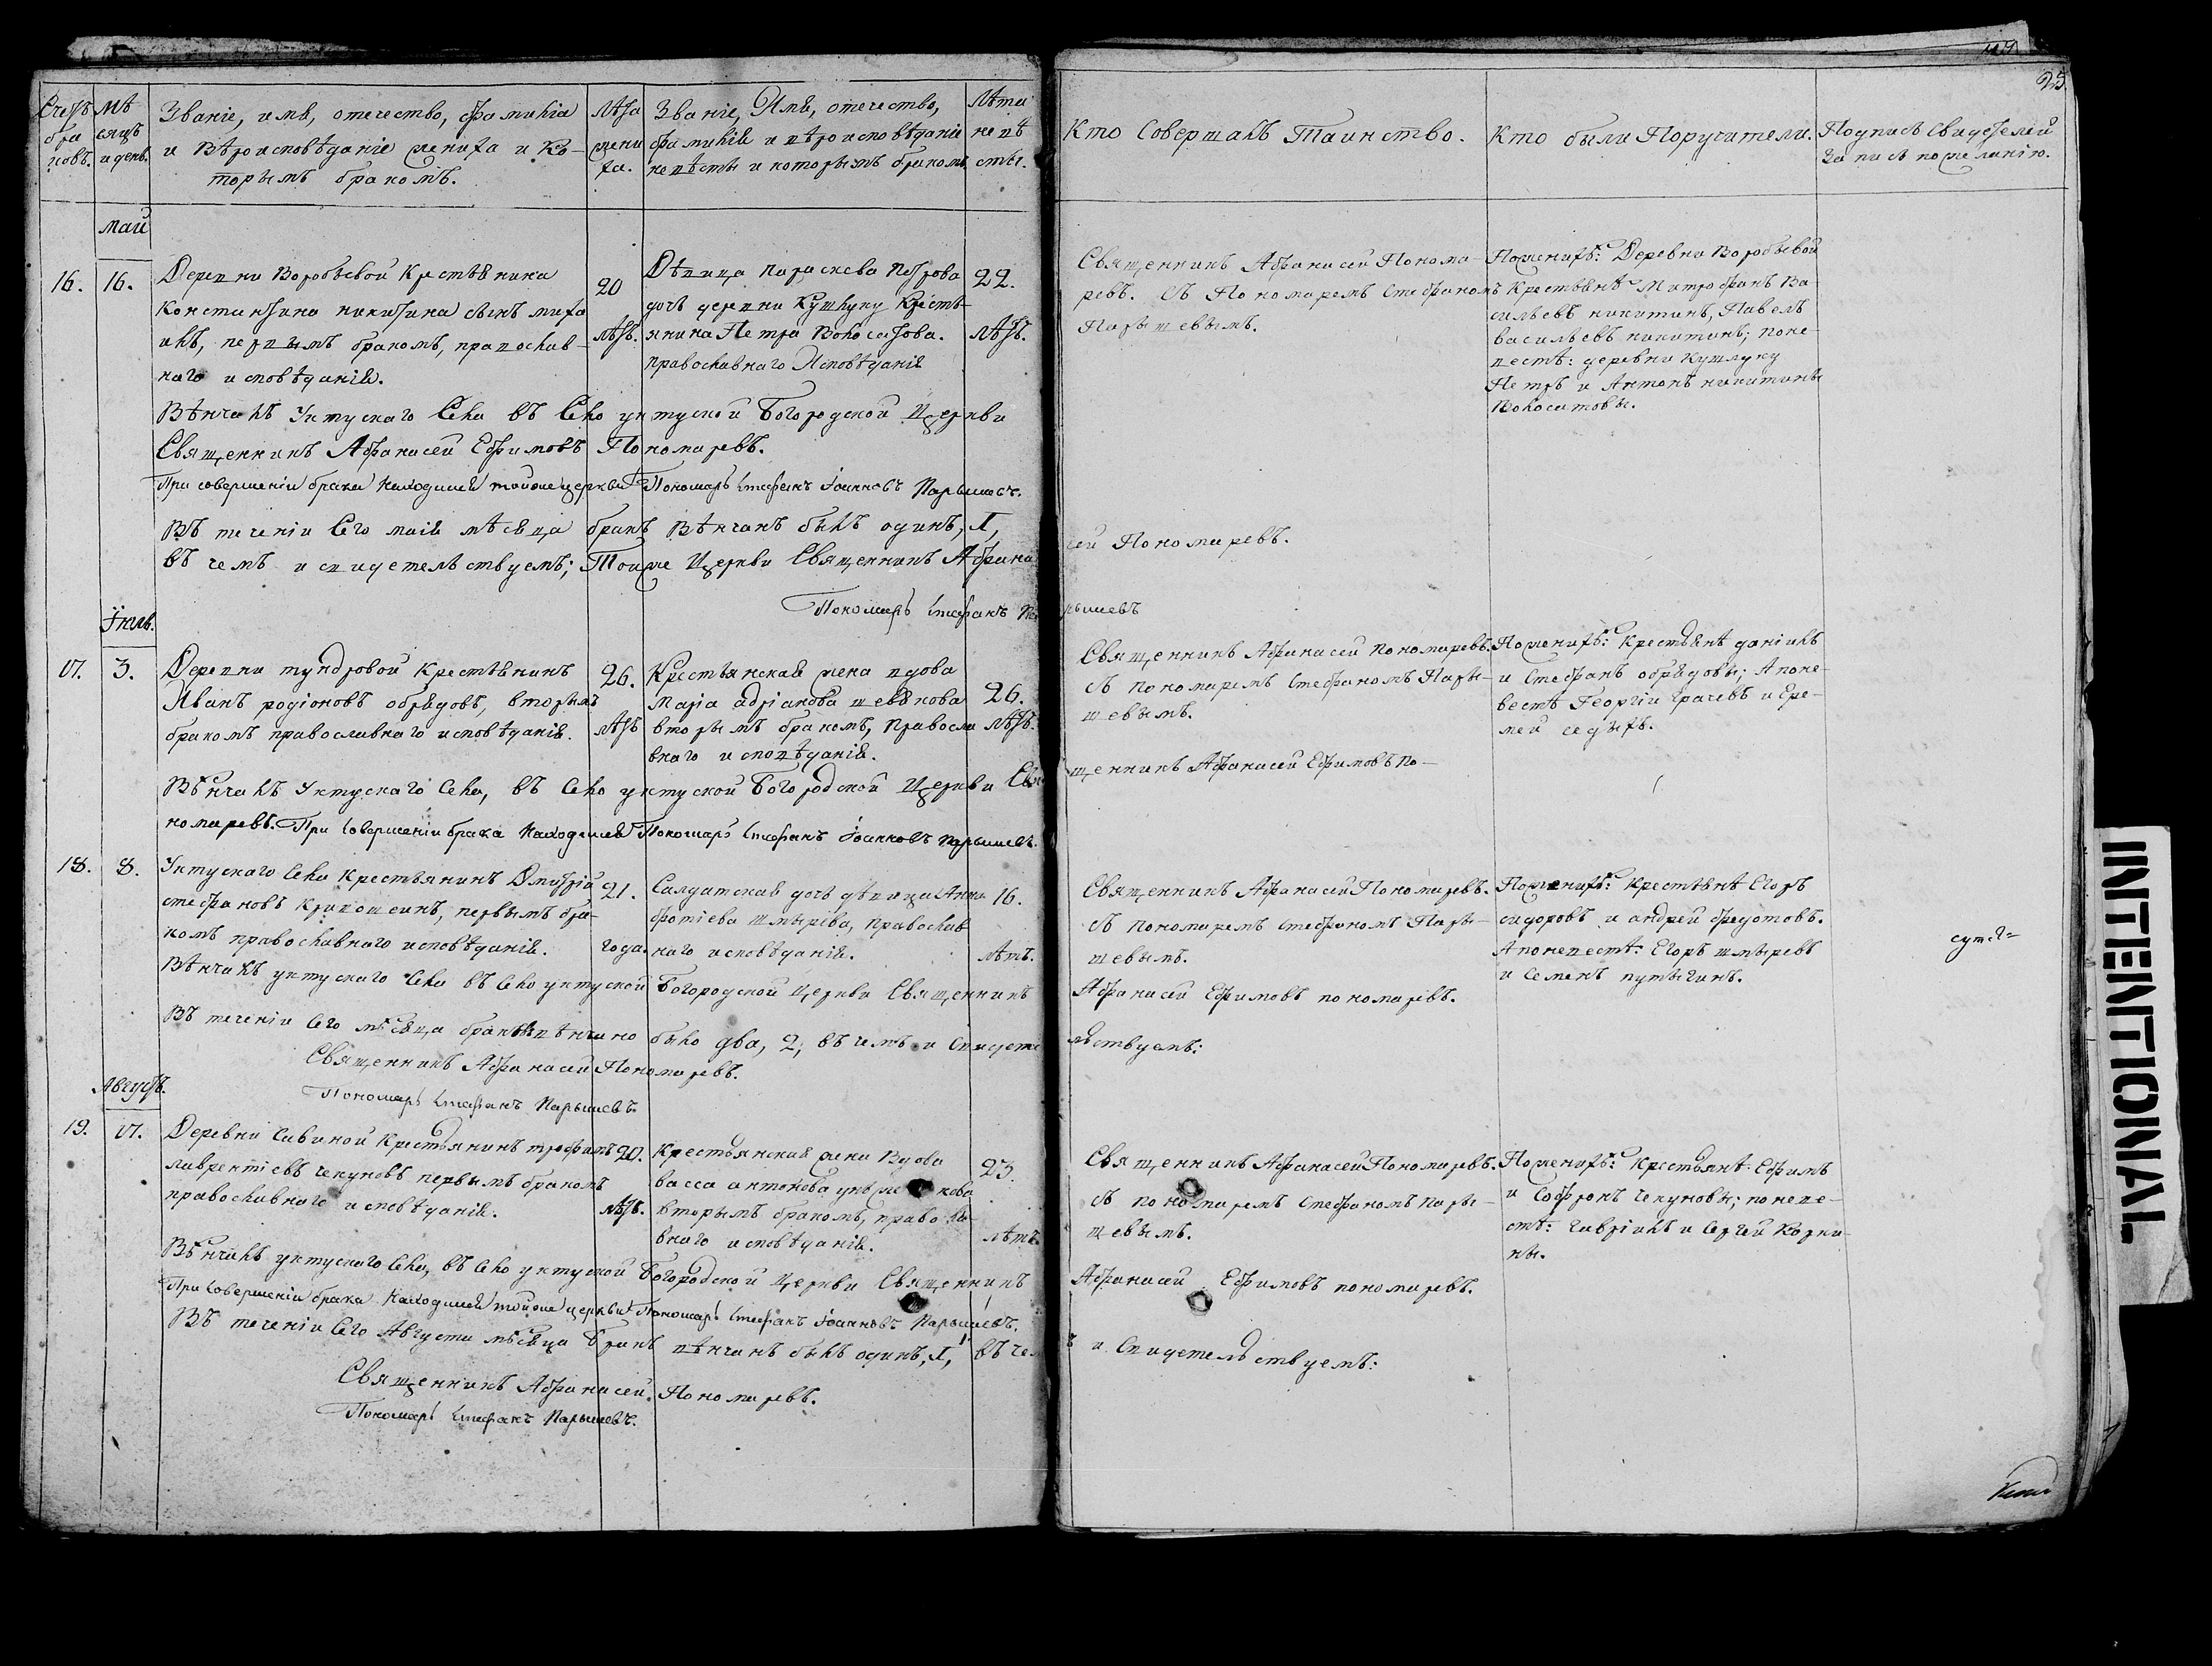 25
Счетъ браковъ.
Мѣсяцъ и день.
Званіе, имя, отечество, фамилія
и вѣроисповѣданіе жениха и ко-
торымъ бракомъ.
Лѣта
жени
ха.
Званіе, Имя, отечество,
фамилія и вѣроисповѣданіе
невѣсты и которымъ бракомъ
Лѣта
невѣ
сты.
Кто Совершалъ Таинство.
Кто были Поручители.
Подпись Свидѣтелей
Записѣ по желанію.
май
16.
16.
Деревни Воробьевой Крестьянина
Константина никитина сынъ миха
илъ, первымъ бракомъ, православ-
наго исповѣданія.
20
лѣтъ.
Дѣвица параскева Петрова
дочь деревни Кушлуку Кресть-
янина Петра Волоситова.
православнаго Исповѣданія
22.
лѣтъ.
Священникъ Афанасей Понома-
ревъ. Съ Пономаремъ Стефаномъ
Парышевымъ.
По женихѣ: Деревни Воробьевой
Крестьянѣ Митрофанъ Ва
сильевъ никитинъ, Павелъ
васильевъ никитинъ; по не-
вестѣ: деревни Кушлуку
Петръ и Антонъ никитины
Волоситовы.
Вѣнчалъ Уктускаго Села въ Село уктуской Богородской Церкви
Священникъ Афанасей Ефимовъ Пономаревъ.
При совершеніи брака находился тойже церкви Пономарь Стефанъ Іоанновъ Парышевъ.
Въ теченіи Сего маія мѣсяца бракъ вѣнчанъ былъ одинъ, 1,
въ чемъ и свидетельствуемъ; Тоиже Церкви Священникъ Афана
сей Пономаревъ.
Пономарь Стефанъ Парышевъ
Іюль.
17.
3.
Деревни тундровой Крестьянинъ
Иванъ родіоновъ обрядовъ, вторымъ
бракомъ православнаго исповѣданія.
26.
лѣтъ
Крестьянская жена вдова
Марія адріанова шевякова
вторымъ бракомъ, Правосла
внаго исповѣданія.
26.
лѣтъ.
Священникъ Афанасей Пономаревъ.
Съ пономаремъ Стефаномъ Пары-
шевымъ.
По женихѣ: Крестьянѣ даніилъ
и Стефанъ обрядовы; А по не-
вестѣ Георгіи Грачевъ и Ере-
мей седыхъ.
Вѣнчалъ Уктускаго Села, въ Село уктуской Богородской Церкви Свя
щенникъ Афанасей Ефимовъ По-
номаревъ. При Совершеніи брака Находился Пономарь Стефанъ Іоанновъ Парышевъ.
18.
8.
Уктускаго Села Крестьянинъ Дмитрій
стефановъ Кривошеинъ, первымъ бра-
комъ православнаго исповѣданія.
21.
года.
Салдатская дочь дѣвица Анна
фотіева шмырева, православ
наго исповѣданія.
16.
лѣтъ.
Священникъ Афанасей Пономаревъ.
Съ пономаремъ Стефаномъ Пары-
шевымъ.
По женихѣ: Крестьянѣ Егоръ
сидоровъ и андрей федотовъ.
А по невестѣ: Егоръ шмыревъ
и Семенъ путыгинъ.
Вѣнчалъ уктускаго Села въ Село уктуской Богородской Церкви Священникъ
Афанасей Ефимовъ пономаревъ.
Въ теченіи Сего мѣсяца браковъ вѣнчано было два, 2; въ чемъ и Свидете
льствуемъ:
Священникъ Афанасей Пономаревъ.
Пономарь Стефанъ Парышевъ
Августъ.
19.
17.
Деревни Савиной Крестьянинъ трофимъ
лаврентіевъ чекуновъ первымъ бракомъ
православнаго исповѣданія.
20.
лѣтъ.
Крестьянская жена Вдова
васса антонова
вторымъ бракомъ, правосла
внаго исповѣданія.
23.
лѣтъ
Священникъ Афанасей Пономаревъ.
Съ пономаремъ Стефаномъ Пары-
шевымъ.
По женихѣ: Крестьянѣ Ефимъ
и Софронъ Чекуновы; по неве-
стѣ: гавріилъ и Сергей Корки-
ны.
Вѣнчалъ уктускаго Села, въ Село уктуской Богородской Церкви Священникъ
Афанасей Ефимовъ пономаревъ.
При Совершеніи брака Находился тойже церкви Пономарь Стефанъ Іоанновъ Парышевъ.
Въ теченіи Сего Августа мѣсяца Бракъ вѣнчанъ былъ одинъ, 1, въ чем
ъ и Свидетельствуемъ:
Священникъ Афанасей Пономаревъ.
Пономарь Стефанъ Парышевъ.
INTENTIONAL